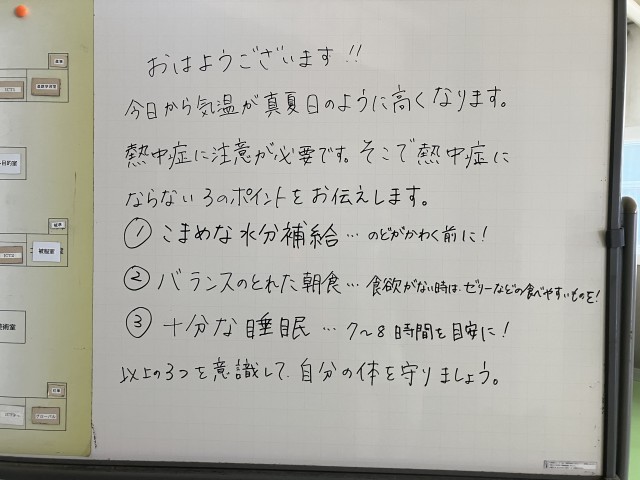 おはようございます!!
今日から気温が真夏日のように高くなります。
熱中症に注意が必要です。そこで熱中症に
ならない3のポイントをお伝えします。
① こまめな水分補給…のどがかわく前に!
② バランスのとれた朝食…食欲がない時は、ゼリーなどの食べやすいものを!
③ 十分な睡眠…7〜8時間を目安に!
以上の3つを意識して、自分の体を守りましょう。
被服室